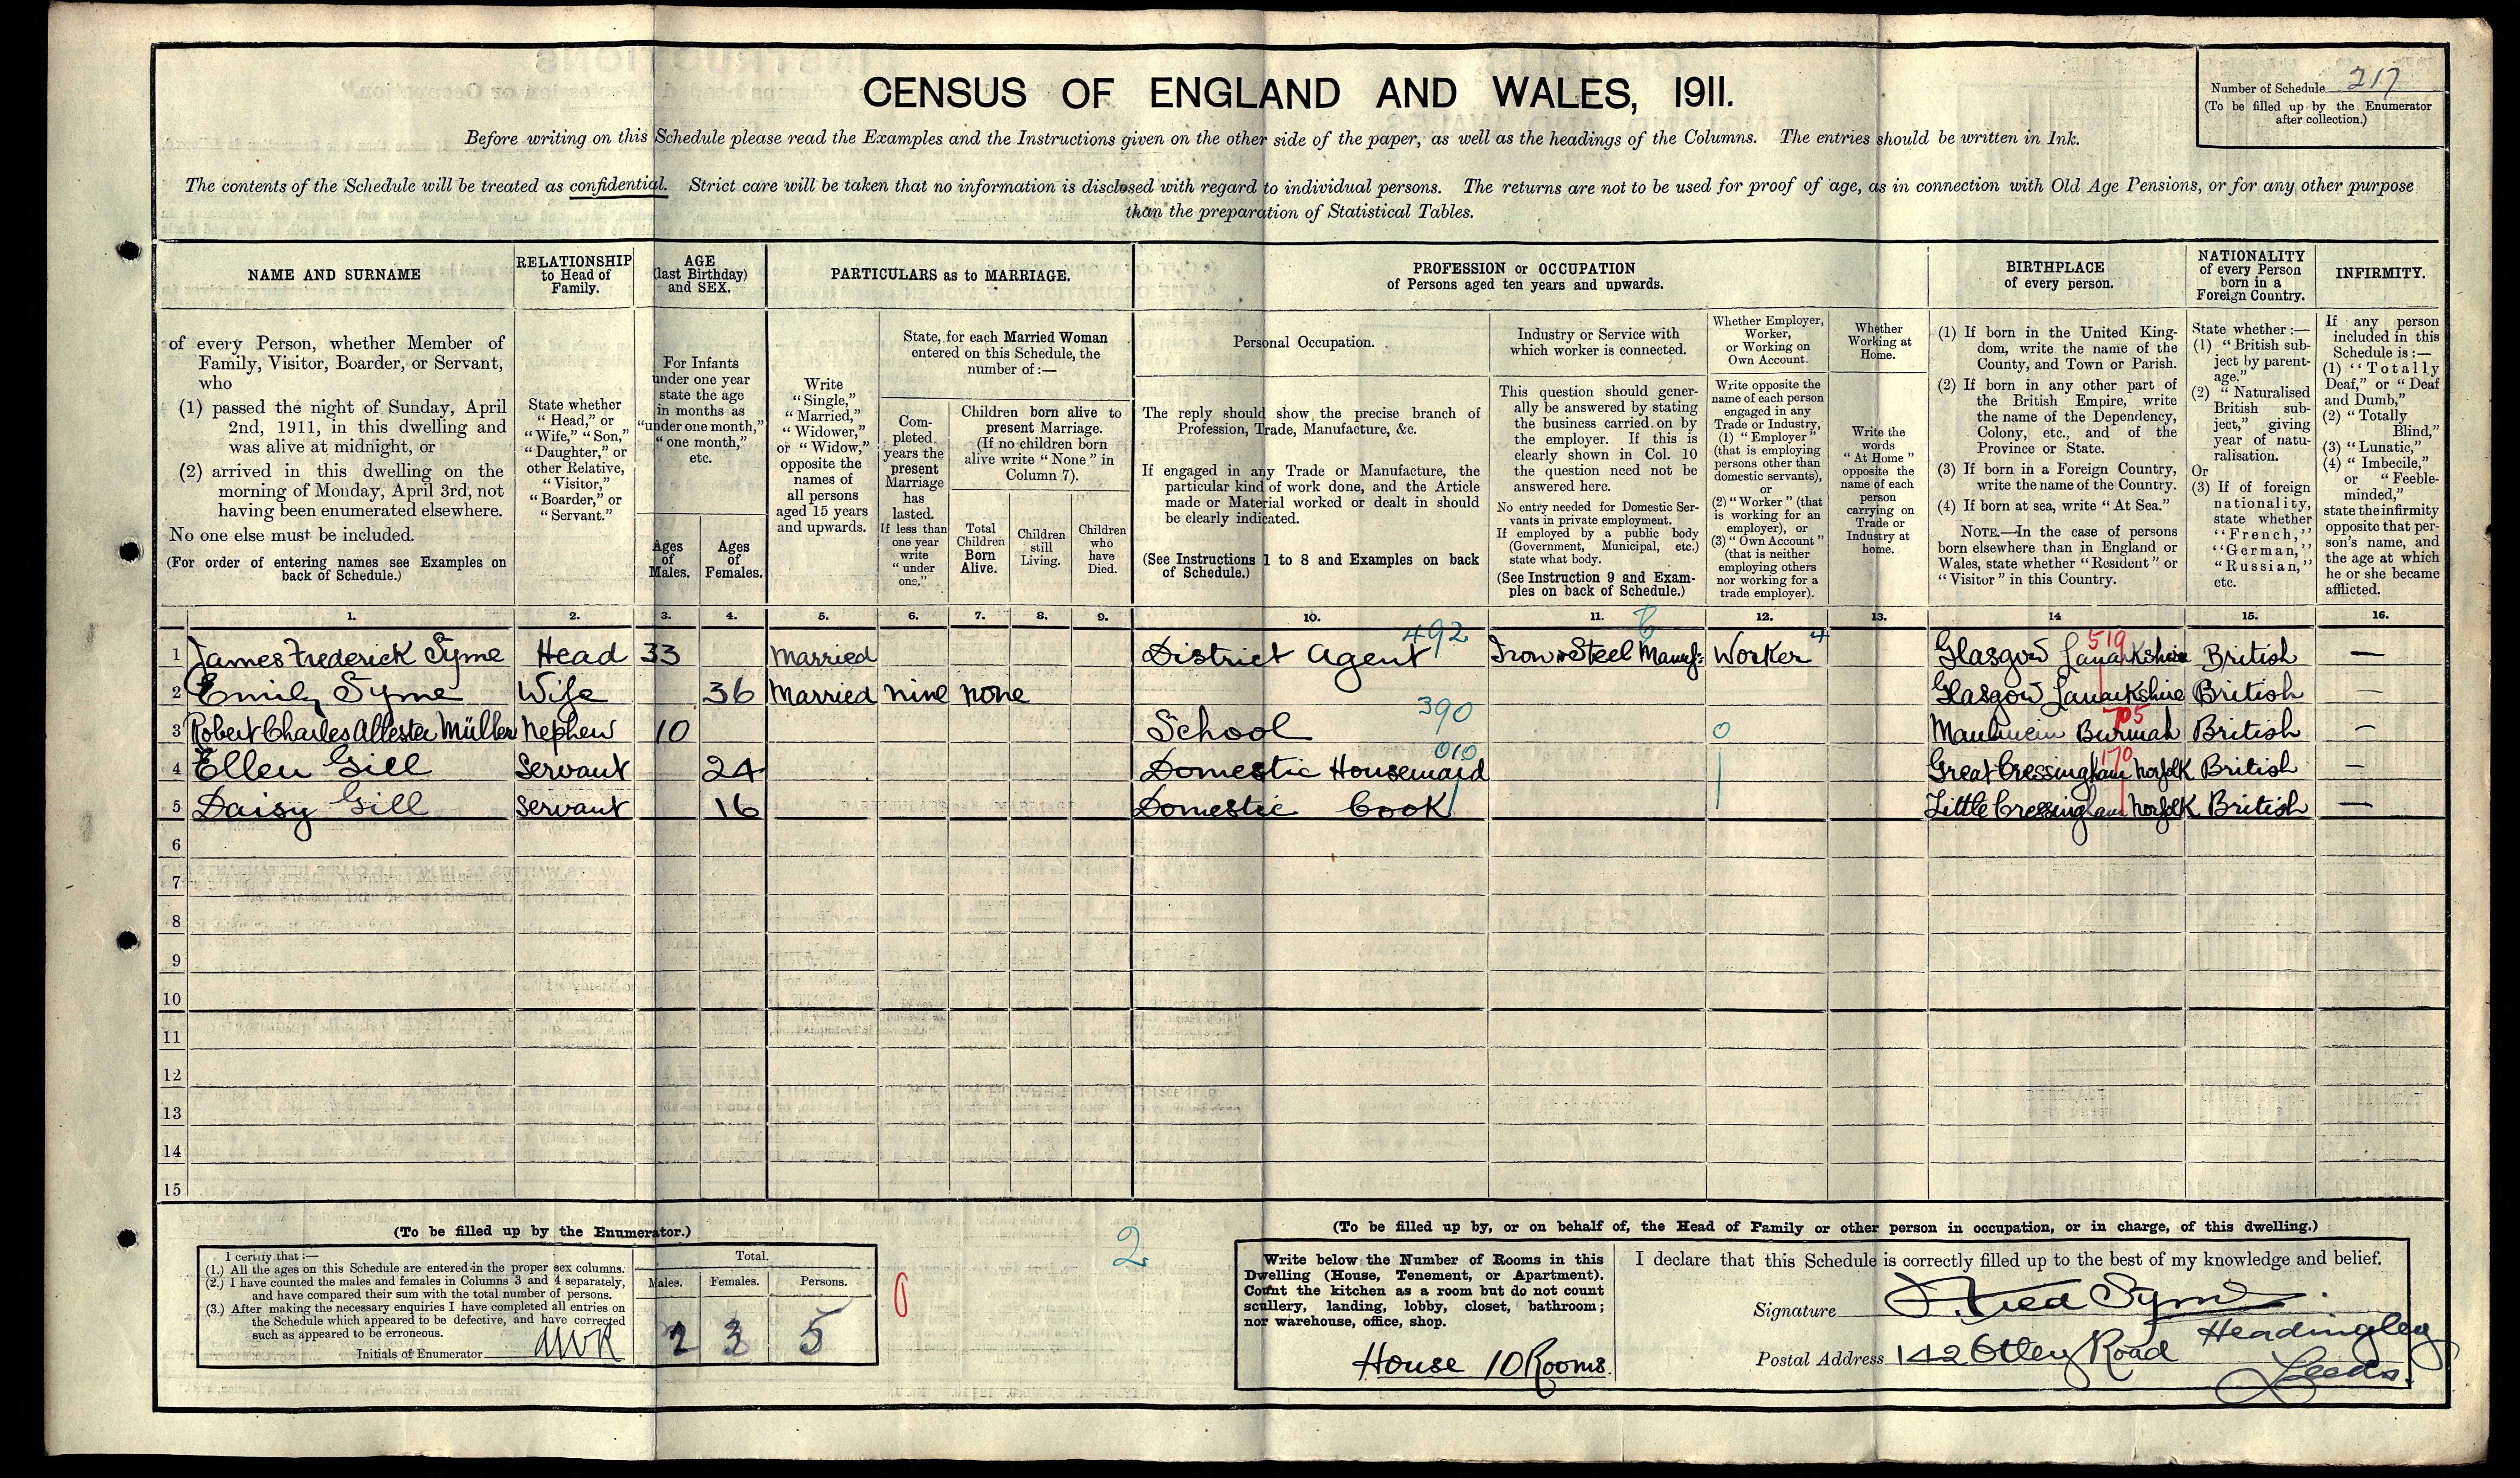 CENSUS OF ENGLAND AND WALES, 1911.
Number of Schedule 217
(To be filled up by the Enumerator
after collection.)
Before writing on this Schedule please read the Examples and the Instructions given on the other side of the paper, as well as the headings of the Columns. The entries should be written in Ink.
The contents of the Schedule will be treated as confidential. Strict care will be taken that no information is disclosed with regard to individual persons. The returns are not to be used for proof of age, as in connection with Old Age Pensions, or for any other purpose
than the preparation of Statistical Tables.
NAME AND SURNAME
of every Person, whether Member of
Family, Visitor, Boarder, or Servant,
who
(1) passed the night of Sunday, April
2nd, 1911, in this dwelling and
was alive at midnight, or
(2) arrived in this dwelling on the
morning of Monday, April 3rd, not
having been enumerated elsewhere.
No one else must be included.
(For order of entering names see Examples on
back of Schedule.)
RELATIONSHIP
to Head of
Family.
State whether
"Head," or
"Wife," "Son,"
"Daughter," or
other Relative,
"Visitor,"
"Boarder," or
"Servant."
AGE
(last Birthday)
and SEX.
For Infants
under one year
state the age
in months as
"under one month,"
"one month,"
etc.
Ages
of
Males.
Ages
of
Females.
PARTICULARS as to MARRIAGE.
Write
"Single,"
"Married,"
"Widower,"
or "Widow,"
opposite the
names of
all persons
aged 15 years
and upwards.
State, for each Married Woman
entered on this Schedule, the
number of:—
Com-
pleted
years the
present
Marriage
has
lasted.
If less than
one year
write
"under
one."
Children born alive to
present Marriage.
(If no children born
alive write "None" in
Column 7).
Total
Children
Born
Alive.
Children
still
Living.
Children
who
have
Died.
PROFESSION or OCCUPATION
of Persons aged ten years and upwards.
Personal Occupation.
The reply should show the precise branch of
Profession, Trade, Manufacture, &c.
If engaged in any Trade or Manufacture, the
particular kind of work done, and the Article
made or Material worked or dealt in should
be clearly indicated.
(See Instructions 1 to 8 and Examples on back
of Schedule.)
Industry or Service with
which worker is connected.
This question should gener-
ally be answered by stating
the business carried on by
the employer. If this is
clearly shown in Col. 10
the question need not be
answered here.
No entry needed for Domestic Ser-
vants in private employment.
If employed by a public body
(Government, Municipal, etc.)
state what body.
(See Instruction 9 and Exam-
ples on back of Schedule.)
Whether Employer,
Worker,
or Working on
Own Account.
Write opposite the
name of each person
engaged in any
Trade or Industry,
(1) "Employer"
(that is employing
persons other than
domestic servants),
or
(2) "Worker" (that
is working for an
employer), or
(3) "Own Account"
(that is neither
employing others
nor working for a
trade employer).
Whether
Working at
Home.
Write the
words
"At Home"
opposite the
name of each
person
carrying on
Trade or
Industry at
home.
BIRTHPLACE
of every person.
(1) If born in the United King-
dom, write the name of the
County, and Town or Parish.
(2) If born in any other part of
the British Empire, write
the name of the Dependency,
Colony, etc., and of the
Province or State.
(3) If born in a Foreign Country,
write the name of the Country.
(4) If born at sea, write "At Sea."
NOTE.—In the case of persons
born elsewhere than in England or
Wales, state whether "Resident" or
"Visitor" in this Country.
NATIONALITY
of every Person
born in a
Foreign Country.
State whether:—
(1) "British sub-
ject by parent-
age."
(2) "Naturalised
British sub-
ject," giving
year of natu-
ralisation.
Or
(3) If of foreign
nationality,
state whether
"French,"
"German,"
"Russian,"
etc.
INFIRMITY.
If any person
included in this
Schedule is:—
(1) "Totally
Deaf," or "Deaf
and Dumb,"
(2) "Totally
Blind,"
(3) "Lunatic,"
(4) "Imbecile,"
or "Feeble-
minded,"
state the infirmity
opposite that per-
son's name, and
the age at which
he or she became
afflicted.
1. 2. 3. 4. 5. 6. 7. 8. 9. 10. 11. 12. 13. 14 15. 16.
492 4 519
1 James Frederick Syme Head 33 Married District Agent Iron & Steel Manuf: Worker Glasgow Lanarkshire British —
2 Emily Syme Wife 36 Married nine none Glasgow Lanarkshire British —
390 705
3 Robert Charles Allester Müller Nephew 10 School 0 Maulmein Burmah British —
010 170
4 Ellen Gill Servant 24 Domestic Housemaid Great Cressingham Norfolk British —
5 Daisy Gill Servant 16 Domestic Cook Little Cressingham Norfolk British —
6
7
8
9
10
11
12
13
14
15
(To be filled up by the Enumerator.)
I certify that:—
(1.) All the ages on this Schedule are entered in the proper sex columns.
(2.) I have counted the males and females in Columns 3 and 4 separately,
and have compared their sum with the total number of persons.
(3.) After making the necessary enquiries I have completed all entries on
the Schedule which appeared to be defective, and have corrected
such as appeared to be erroneous.
Initials of Enumerator
Total.
Males. Females. Persons.
2 3 5
0
2
(To be filled up by, or on behalf of, the Head of Family or other person in occupation, or in charge, of this dwelling.)
Write below the Number of Rooms in this
Dwelling (House, Tenement, or Apartment).
Count the kitchen as a room but do not count
scullery, landing, lobby, closet, bathroom;
nor warehouse, office, shop.
House 10 Rooms.
I declare that this Schedule is correctly filled up to the best of my knowledge and belief.
Signature J. Fred Syme
Postal Address 142 Otley Road Headingley
Leeds.